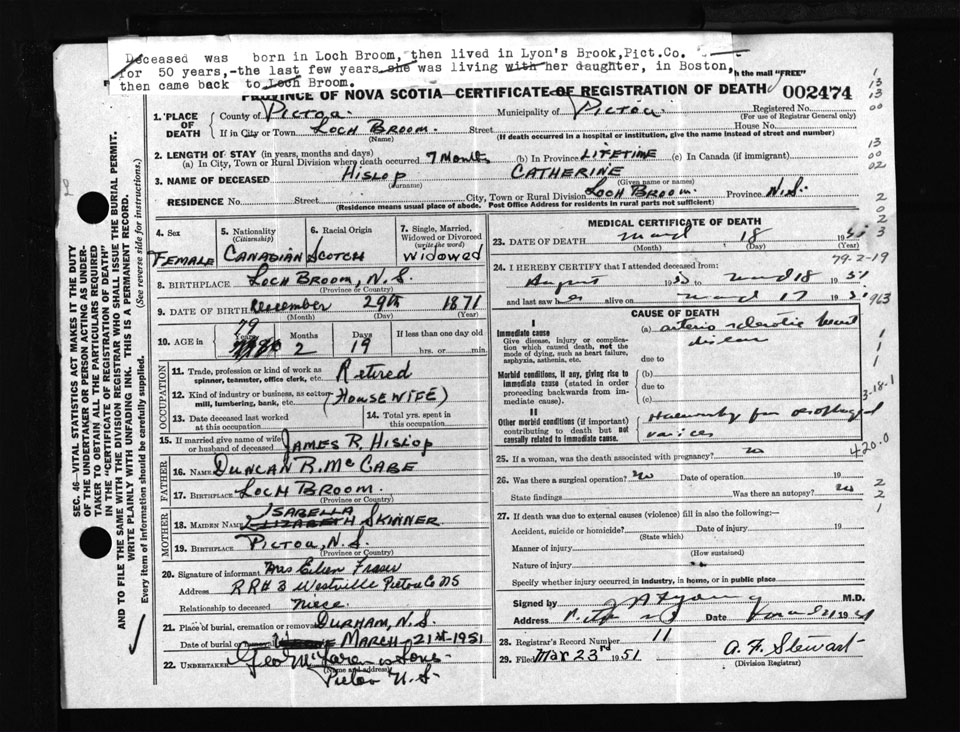 Deceased was born in Loch Broom, then lived in Lyon's Brook, Pict.Co.
for 50 years,-the last few years she was living with her daughter, in Boston,
then came back to Loch Broom.
h the mail "FREE"
PROVINCE OF NOVA SCOTIA—CERTIFICATE OF REGISTRATION OF DEATH 002474
1. PLACE OF DEATH
County of Pictou Municipality of Pictou Registered No.
(For use of Registrar General only)
If in City or Town Loch Broom. Street House No.
(Name) (If death occurred in a hospital or institution, give the name instead of street and number)
2. LENGTH OF STAY (in years, months and days)
(a) In City, Town or Rural Division where death occurred 7 Months (b) In Province LIFETIME (c) In Canada (if immigrant)
3. NAME OF DECEASED Hislop CATHERINE
(Surname) (Given name or names)
RESIDENCE No. Street City, Town or Rural Division Loch Broom. Province N.S.
(Residence means usual place of abode. Post Office Address for residents in rural parts not sufficient)
4. Sex FEMALE
5. Nationality (Citizenship) CANADIAN
6. Racial Origin SCOTCH
7. Single, Married, Widowed or Divorced (write the word) Widowed
8. BIRTHPLACE Loch Broom, N.S.
(Province or Country)
9. DATE OF BIRTH December 29th 1871
(Month) (Day) (Year)
10. AGE in 79 Years 2 Months 19 Days If less than one day old
hrs. or min.
OCCUPATION
11. Trade, profession or kind of work as spinner, teamster, office clerk, etc. Retired
12. Kind of industry or business, as cotton mill, lumbering, bank, etc. (HOUSEWIFE)
13. Date deceased last worked at this occupation
14. Total yrs. spent in this occupation
15. If married give name of wife or husband of deceased JAMES R. HISLOP
FATHER
16. NAME DUNCAN R. McCABE
17. BIRTHPLACE LOCH BROOM.
(Province or Country)
MOTHER
18. MAIDEN NAME ISABELLA ELIZABETH SKINNER
19. BIRTHPLACE PICTOU, N.S.
(Province or Country)
20. Signature of informant Mrs Eileen Fraser
Address RR# 3 Westville Pictou Co NS
Relationship to deceased Niece.
21. Place of burial, cremation or removal DURHAM, N.S.
Date of burial or removal MARCH 21st 1951
22. UNDERTAKER
(Name and address)
Pictou N.S.
MEDICAL CERTIFICATE OF DEATH
23. DATE OF DEATH March 18 1951
(Month) (Day) (Year)
79-2-19
24. I HEREBY CERTIFY that I attended deceased from:
August 1950 to March 18 1951
and last saw her alive on March 17 1951
CAUSE OF DEATH
I
Immediate cause
Give disease, injury or complication which caused death, not the mode of dying, such as heart failure, asphyxia, asthenia, etc.
(a) arterio sclerotic heart disease
due to
Morbid conditions, if any, giving rise to immediate cause (stated in order proceeding backwards from immediate cause).
(b)
due to
(c)
3-18-1
II
Other morbid conditions (if important) contributing to death but not causally related to immediate cause.
oesophageal varices
420.0
25. If a woman, was the death associated with pregnancy? no
26. Was there a surgical operation? no Date of operation 19
State findings Was there an autopsy? no
27. If death was due to external causes (violence) fill in also the following:—
Accident, suicide or homicide? Date of injury 19
(State which)
Manner of injury
(How sustained)
Nature of injury
Specify whether injury occurred in industry, in home, or in public place
Signed by M.D.
Address Date March 21 1951
28. Registrar's Record Number 11
29. Filed Mar 23rd 1951 A. F. Stewart
(Division Registrar)
SEC. 46—VITAL STATISTICS ACT MAKES IT THE DUTY
OF THE UNDERTAKER OR PERSON ACTING AS UNDERTAKER TO OBTAIN ALL THE PARTICULARS REQUIRED
IN THE "CERTIFICATE OF REGISTRATION OF DEATH"
AND TO FILE THE SAME WITH THE DIVISION REGISTRAR WHO SHALL ISSUE THE BURIAL PERMIT.
WRITE PLAINLY WITH UNFADING INK. THIS IS A PERMANENT RECORD.
Every item of information should be carefully supplied. (See reverse side for instructions.)